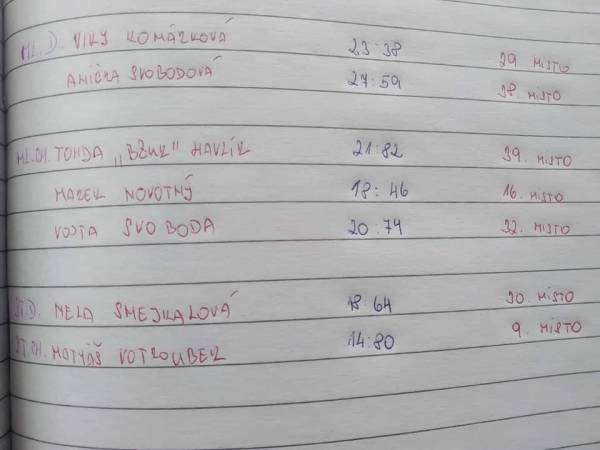 ML.D. VIKY KOMÁRKOVÁ 23:38 29. MÍSTO
ANIČKA SVOBODOVÁ 27:59 38. MÍSTO
ML.CH. TONDA „BŽUK" HAVLÍK 21:82 39. MÍSTO
MAREK NOVOTNÝ 18:46 16. MÍSTO
VOJTA SVOBODA 20.74 32. MÍSTO
ST.D. NELA SMEJKALOVÁ 18:64 30. MÍSTO
ST.CH. MATYÁŠ VOTROUBEK 14:80 9. MÍSTO